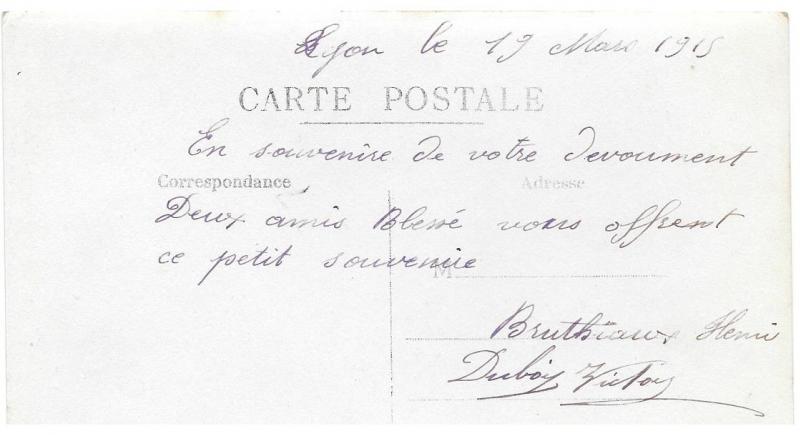 Lyon le 19 Mars 1915
CARTE POSTALE
En souvenire de votre devoument
Correspondance
Adresse
Deux amis Blessé vous offrent
ce petit souvenire
M
Bruthiaux Henri
Duboy Victor